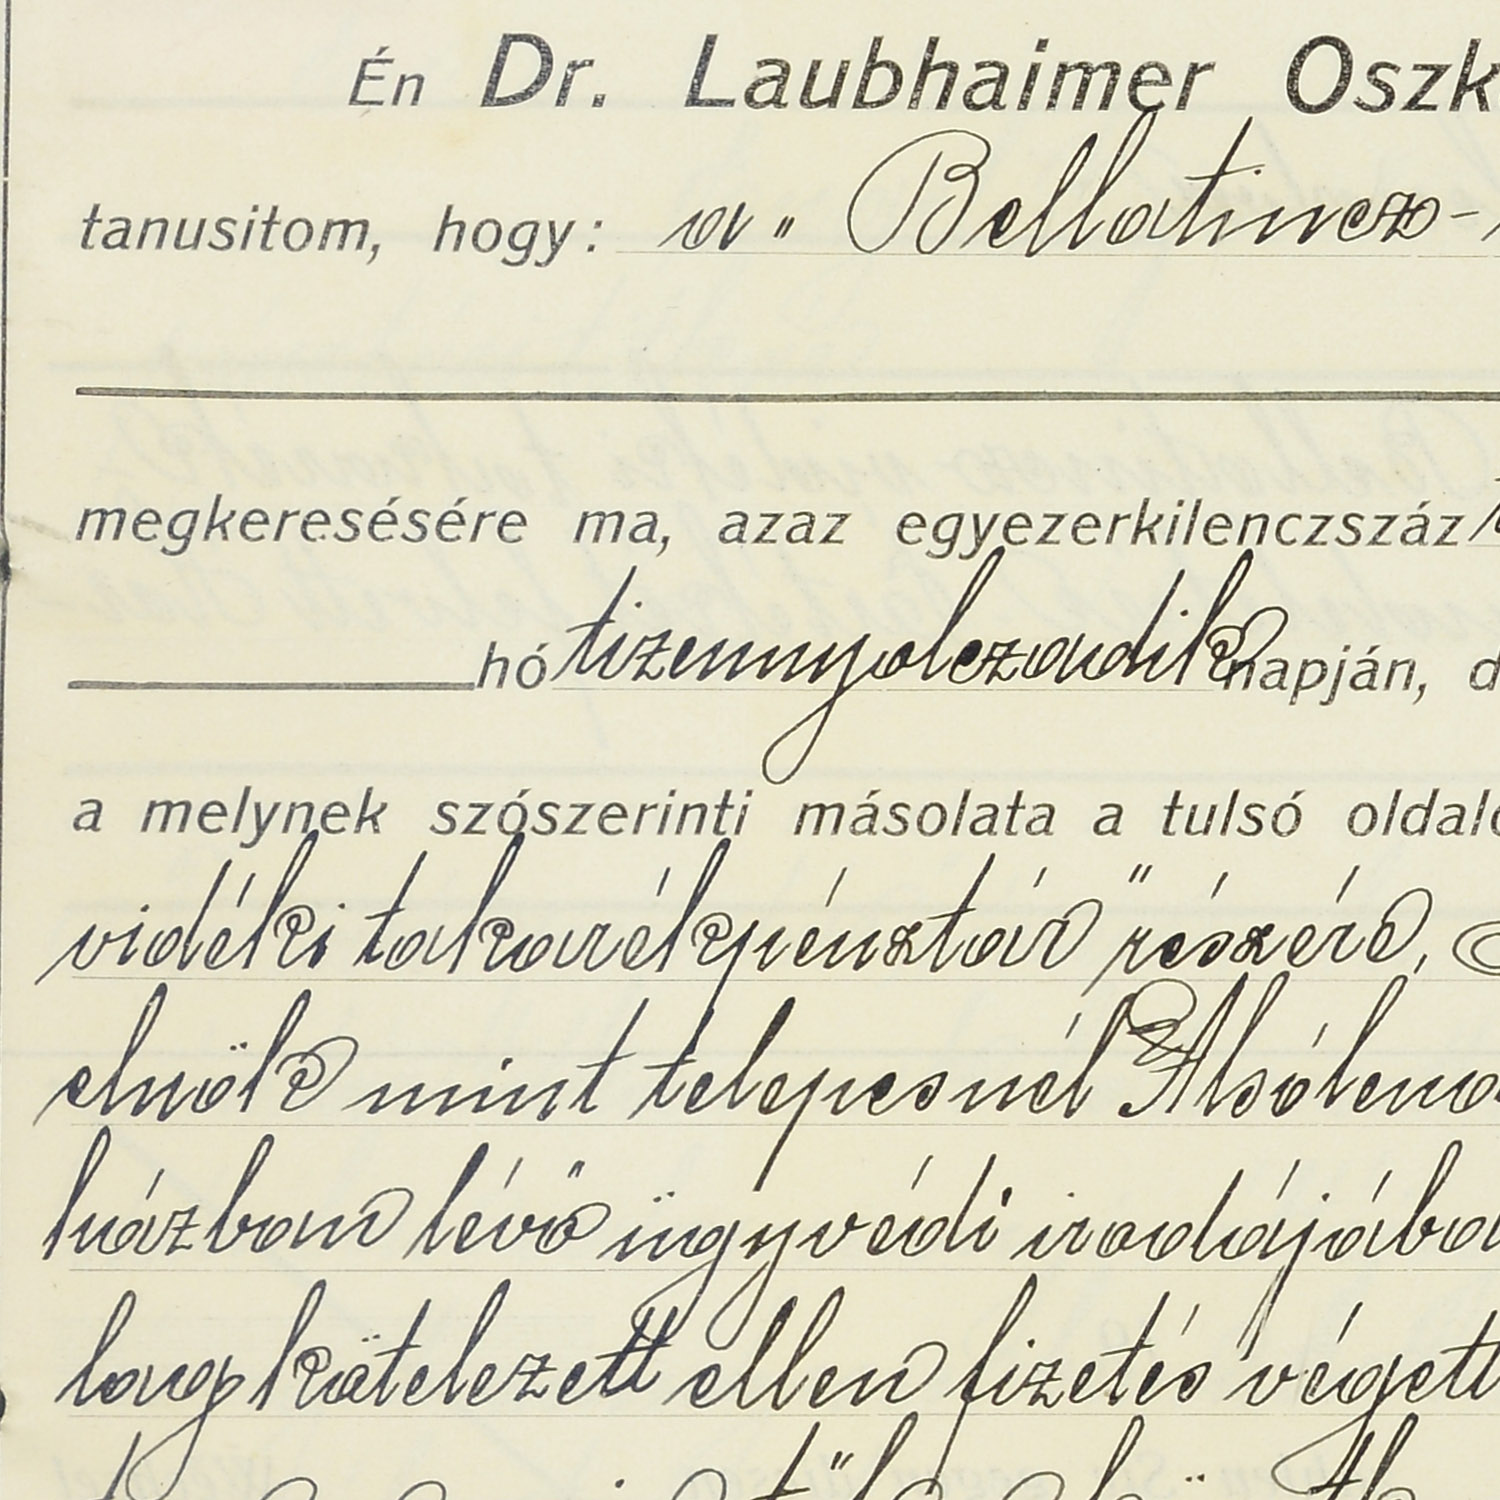 Én Dr. Laubhaimer Oszk
tanusitom, hogy: a „Bellatincz-
megkeresésére ma, azaz egyezerkilenczszáz
hó tizennyolczadik napján, d
a melynek szószerinti másolata a tulsó oldal
vidéki takarékpénztár" részére,
elnök mint telepesnél Alsólen
házban lévő ügyvédi irodájába
lag kötelezett ellen fizetés végett